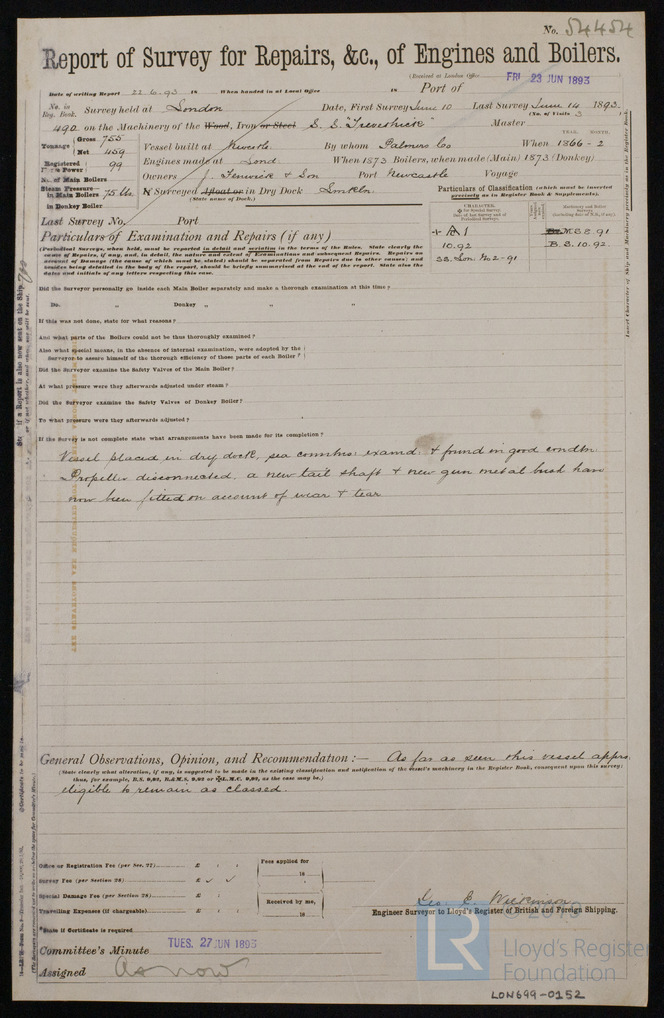 No. 54454
Report of Survey for Repairs, &c., of Engines and Boilers.
(Received at London Office FRI 23 JUN 1893
Date of writing Report 22.6.93 18 When handed in at Local Office 18 Port of
No. in Reg. Book. Survey held at London Date, First Survey June 10 Last Survey June 14 1893.
(No. of Visits 3)
490 on the Machinery of the Wood, Iron or Steel S. S. "Trevethick" Master
Tonnage Gross 755 Net 459 Vessel built at Nwcstle By whom Palmers Co When 1866-2
YEAR. MONTH.
Registered Horse Power 99 Engines made at Lond. When 1873 Boilers, when made (Main) 1873 (Donkey)
No. of Main Boilers Owners J. Fenwick & Son Port Newcastle Voyage
Steam Pressure in Main Boilers 75 lbs If Surveyed Afloat or in Dry Dock London
(State name of Dock.)
in Donkey Boiler
Particulars of Classification (which must be inserted precisely as in Register Book & Supplements).
CHARACTER.
+ A 1
10.92
SS. Lon. No 2-91
M.S. 8.91
B.S. 10.92.
Last Survey No. Port
Particulars of Examination and Repairs (if any)
(Periodical Surveys, when held, must be reported in detail and seriatim in the terms of the Rules. State clearly the
causes of Repairs, if any, and, in detail, the nature and extent of Examinations and subsequent Repairs. Repairs on
account of Damage (the cause of which must be stated) should be separated from Repairs due to other causes; and
besides being detailed in the body of the report, should be briefly summarised at the end of the report. State also the
dates and initials of any letters respecting this case.
Did the Surveyor personally go inside each Main Boiler separately and make a thorough examination at this time?
Do. „ Donkey „ „ „
If this was not done, state for what reasons?
And what parts of the Boilers could not be thus thoroughly examined?
Also what special means, in the absence of internal examination, were adopted by the
Surveyor to assure himself of the thorough efficiency of those parts of each Boiler?
Did the Surveyor examine the Safety Valves of the Main Boiler?
At what pressure were they afterwards adjusted under steam?
Did the Surveyor examine the Safety Valves of Donkey Boiler?
To what pressure were they afterwards adjusted?
If the Survey is not complete state what arrangements have been made for its completion?
Vessel placed in dry dock, sea conntns examd. & found in good condtn
Propeller disconnected, a new tail shaft & new gun metal bush have
now been fitted on account of wear & tear
General Observations, Opinion, and Recommendation:— As far as seen this vessel apprs.
(State clearly what alteration, if any, is suggested to be made in the existing classification and notification of the vessel's machinery in the Register Book, consequent upon this survey;
thus, for example, B.S. 9,92, B.&M.S. 9,92 or L.M.C. 9,92, as the case may be.)
eligible to remain as classed.
Office or Registration Fee (per Sec. 27) £ : :
Survey Fee (per Section 28) £ : :
Special Damage Fee (per Section 28) £ : :
Travelling Expenses (if chargeable) £ : :
Fees applied for
18
Received by me,
18
Geo. E. Wilkinson
Engineer Surveyor to Lloyd's Register of British and Foreign Shipping.
State if Certificate is required
Committee's Minute TUES. 27 JUN 1893
Assigned As now
LR
Lloyd's Register
Foundation
LON699-0152